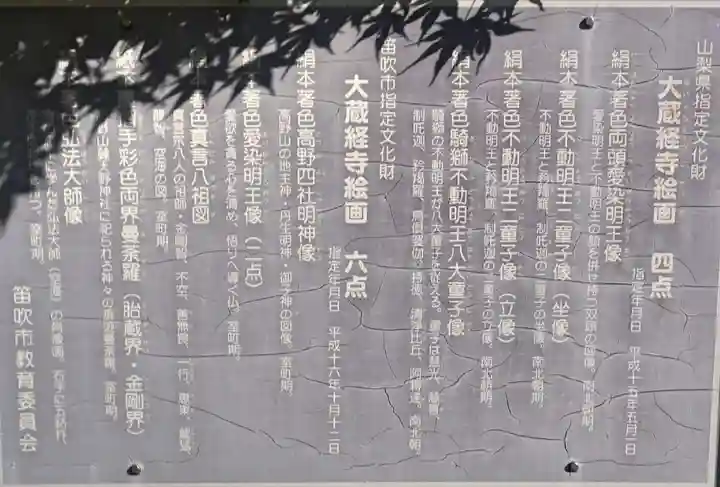 山梨県指定文化財
大蔵経寺絵画 四点
指定年月日 平成十五年五月一日
絹本著色両頭愛染明王像
愛染明王と不動明王の顔を併せ持つ双頭の
絹本著色不動明王二童子像（坐像）
不動明王と矜羯羅、制吒迦の二童子の坐像。南北朝期。
絹本著色不動明王二童子像（立像）
不動明王と矜羯羅、制吒迦の二童子の立像。南北朝期。
絹本著色騎獅不動明王八大童子像
騎獅の不動明王が八大童子を従える。童子は慧光、慧喜、
制吒迦、矜羯羅、烏倶婆伽、持徳、清浄比丘、阿耨達。南北朝
笛吹市指定文化財
大蔵経寺絵画 六点
指定年月日 平成十六年十月十二日
絹本著色高野四社明神像
高野山の地主神・丹生明神・御子神の図像。室町期。
絹本著色愛染明王像（二点）
愛欲を清め、悟りへ導く仏。室町期。
著色真言八祖図
真言宗八人の祖師・金剛智、不空、善無畏、一行、恵果、龍猛、
龍智、空海の図。室町期。
彩色両界曼荼羅（胎蔵界・金剛界）
神社に祀られる神々の曼荼羅。室町期。
弘法大師像
弘法大師（空海）の
室町期。
笛吹市教育委員会